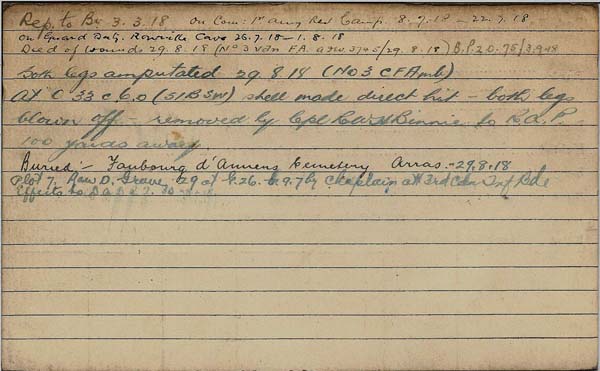 Rep. to Bn 3.3.18 on Com: 1st Army Rest Camp. 8.7.18 - 22.7.18
on Guard Duty. Ronville Cave 26.7.18 - 1.8.18
Died of wounds 29.8.18 (No 3 Cdn FA. /29.8.18)
both legs amputated 29.8.18 (No 3 CFAmb)
At C 33 c 6.0 (51BSW) shell made direct hit - both legs
blown off - removed by Cpl Binnie to R.A.P.
100 yards away
Buried :- Faubourg d'Amiens Cemetery Arras. - 29.8.18
Plot 7. Row D. Grave 29 at G.26. 9.7 by Chaplain att 3rd Cdn Inf Bde
Effects to